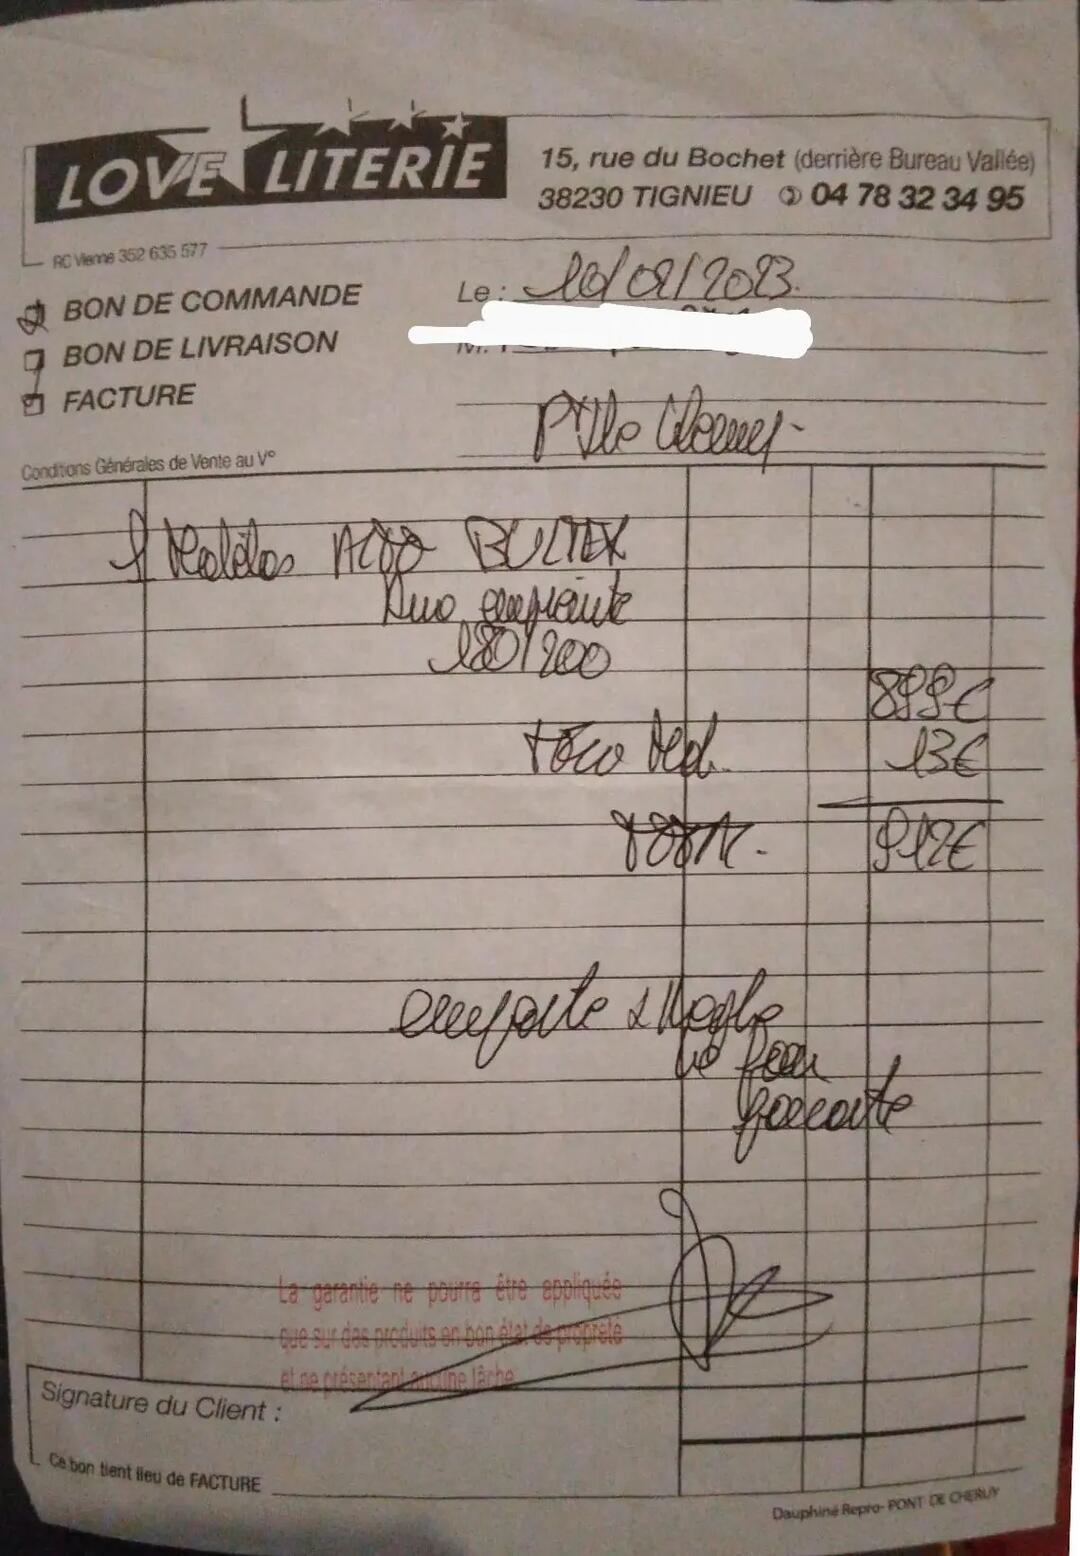 LOVE LITERIE
15, rue du Bochet (derrière Bureau Vallée)
38230 TIGNIEU 04 78 32 34 95
RC Vienne 352 635 577
BON DE COMMANDE
BON DE LIVRAISON
FACTURE
Le : 10/02/2023.
Conditions Générales de Vente au V°
1 BULTEX
Duo empreinte
180/200
899€
13€
912€
emporte
La garantie ne pourra être appliquée
que sur des produits en bon état de propreté
et ne présentant aucune tâche
Signature du Client :
Ce bon tient lieu de FACTURE
Dauphiné Repro- PONT DE CHERUY